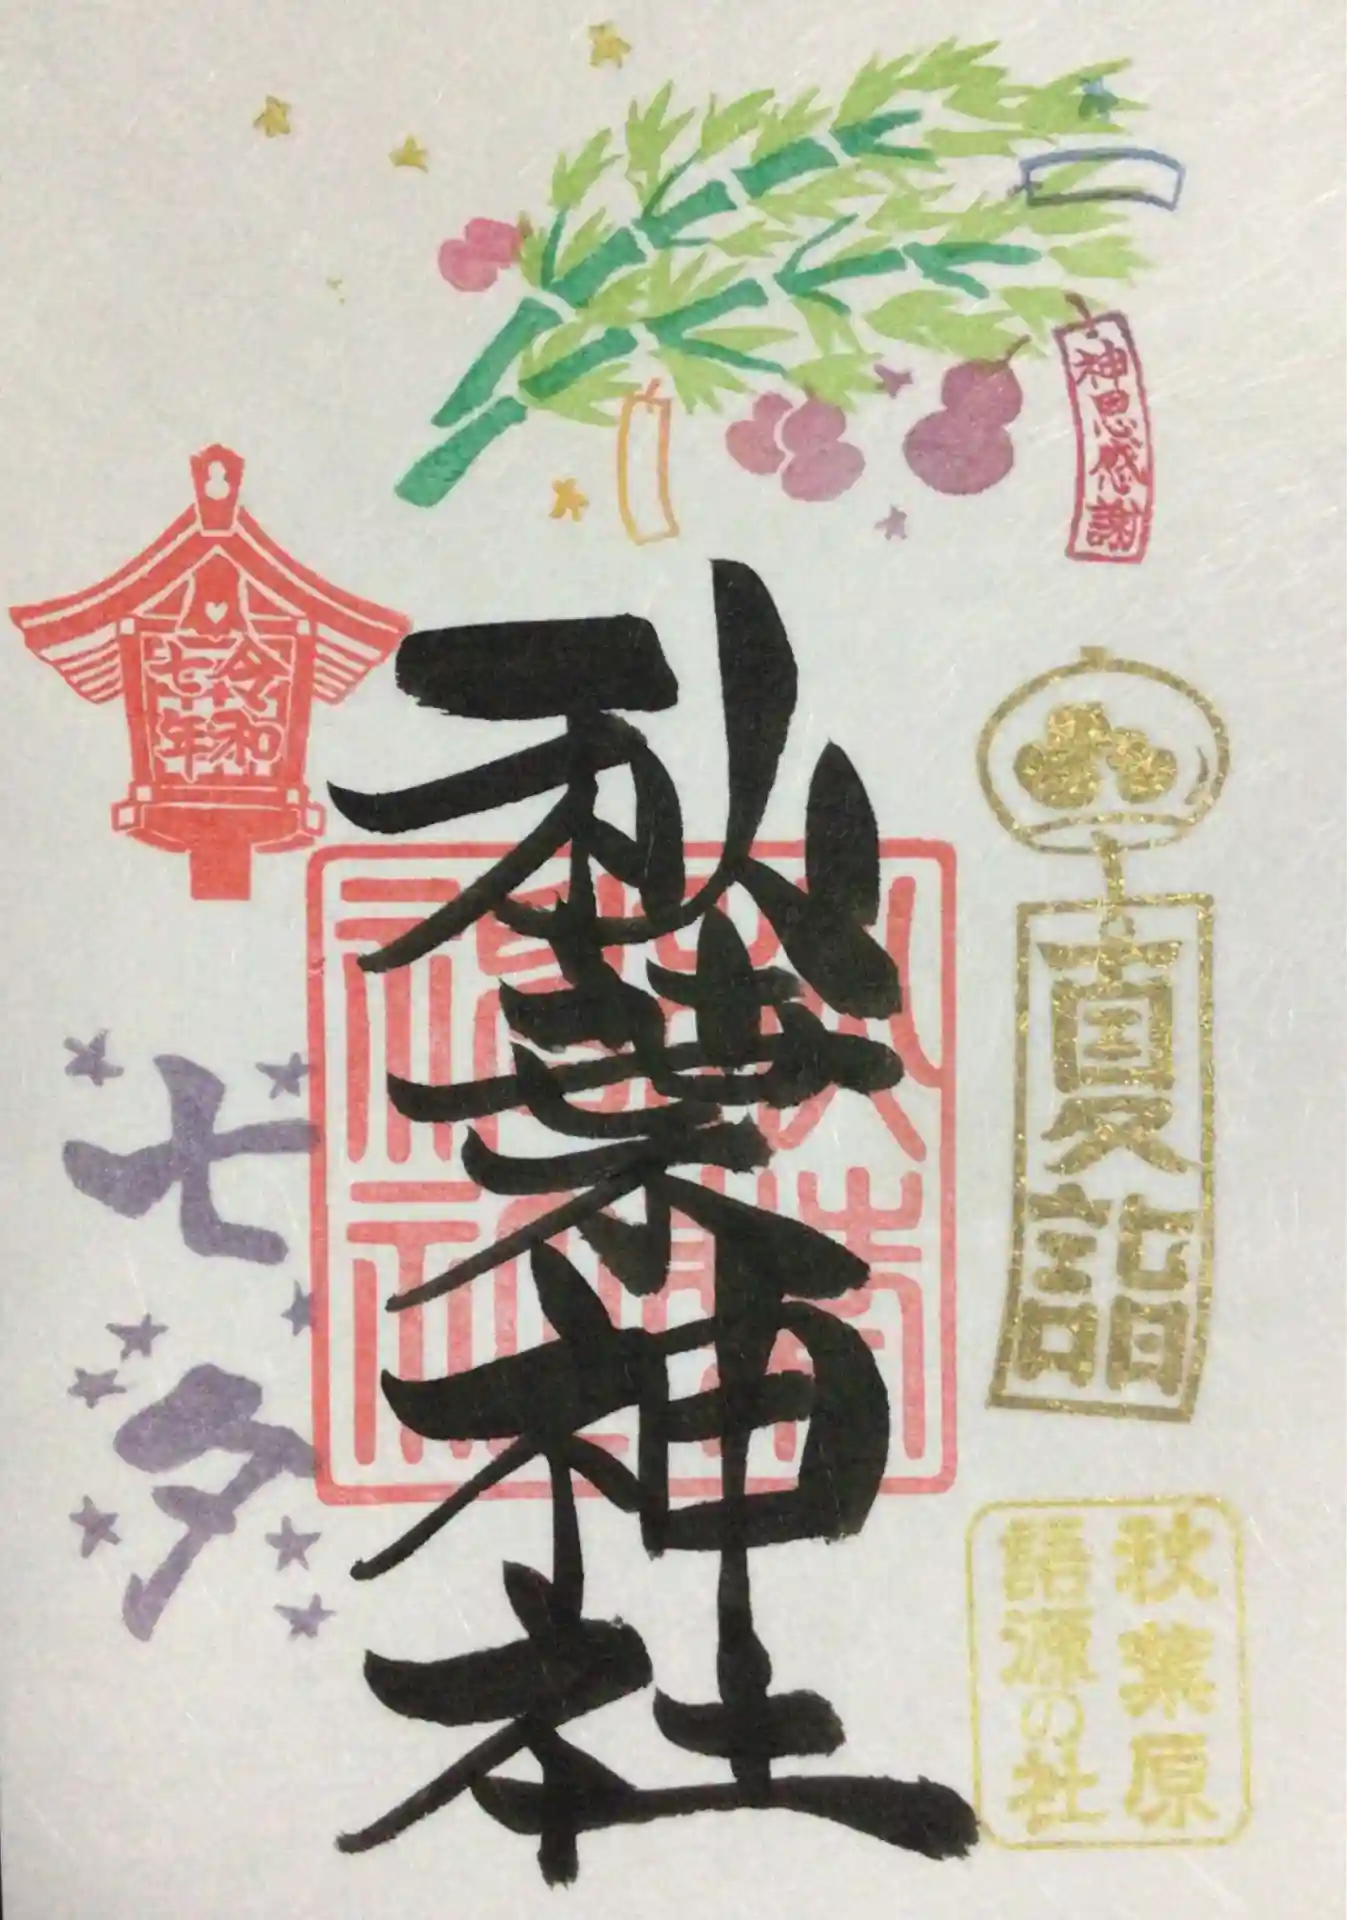 神恩感謝
夏詣
秋葉原
語源の社
秋葉神社
令和
七年
七夕